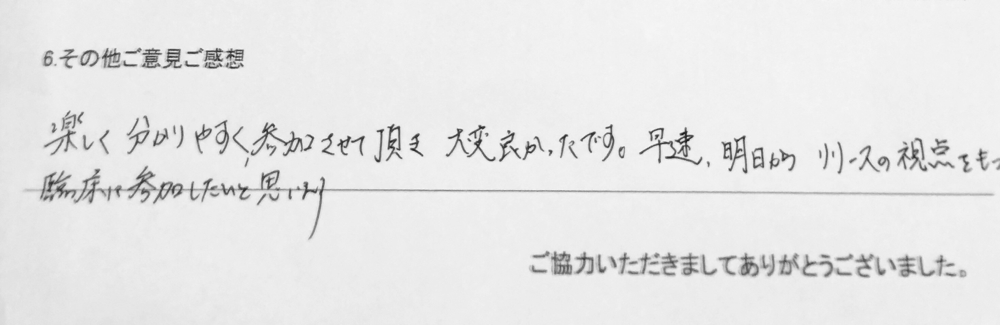 6.その他ご意見ご感想
楽しく分かりやすく、参加させて頂き 大変良かったです。早速、明日から リリースの視点をもっ
臨床に参加したいと思います
ご協力いただきましてありがとうございました。